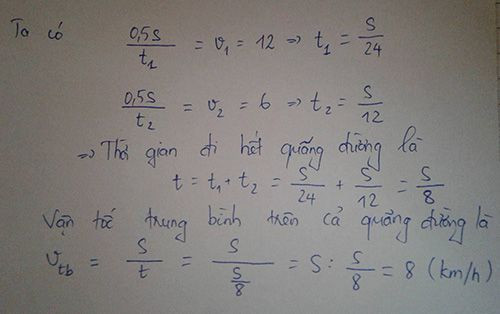 Ta có 0,5S/t₁ = v₁ = 12 => t₁ = S/24
0,5S/t₂ = v₂ = 6 => t₂ = S/12
=> Thời gian đi hết quãng đường là
t = t₁ + t₂ = S/24 + S/12 = S/8
Vận tốc trung bình trên cả quãng đường là
v_tb = S/t = S/(S/8) = S : S/8 = 8 (km/h)